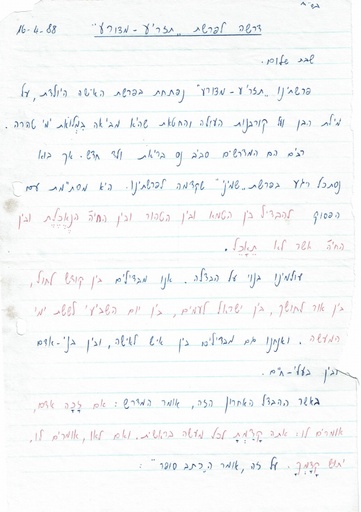 בס"ד
16-4-88 דרשה לפרשת "תזריע - מצורע"
שבת שלום.
פרשתנו "תזריע - מצורע" נפתחת בפרשת האישה היולדת, על
מילת הבן ועל קורבנות העולה והחטאת שהיא מביאה במלואת ימי טהרה.
רבים הם המדרשים סביב נס בריאת ולד חדש. אך בואו
נסתכל רגע בפרשת "שמיני" שקדמה לפרשתינו. היא מסתיימת עם
הפסוק להבדיל בין הטמא ובין הטהור ובין החיה הנֶאֱכֶלֶת ובין
החיה אשר לא תֵאָכֵל.
עולמינו בנוי על הבדלה. אנו מבדילים בין קודש לחול,
בין אור לחושך, בין ישראל לעמים, בין יום השביעי לששת ימי
המעשה. ואנחנו גם מבדילים בין איש לאישה, ובין בני-אדם
ובין בעלי-חיים.
באשר ההבדל האחרון הזה, אומר המדרש: אם זָכָה אדם,
אומרים לו: אתה קָדַמְתָ לכל מעשה בראשית. ואם לאו, אומרים לו,
יתוש קְדָמְךָ. על זה, אומר ה"כתב סופר":